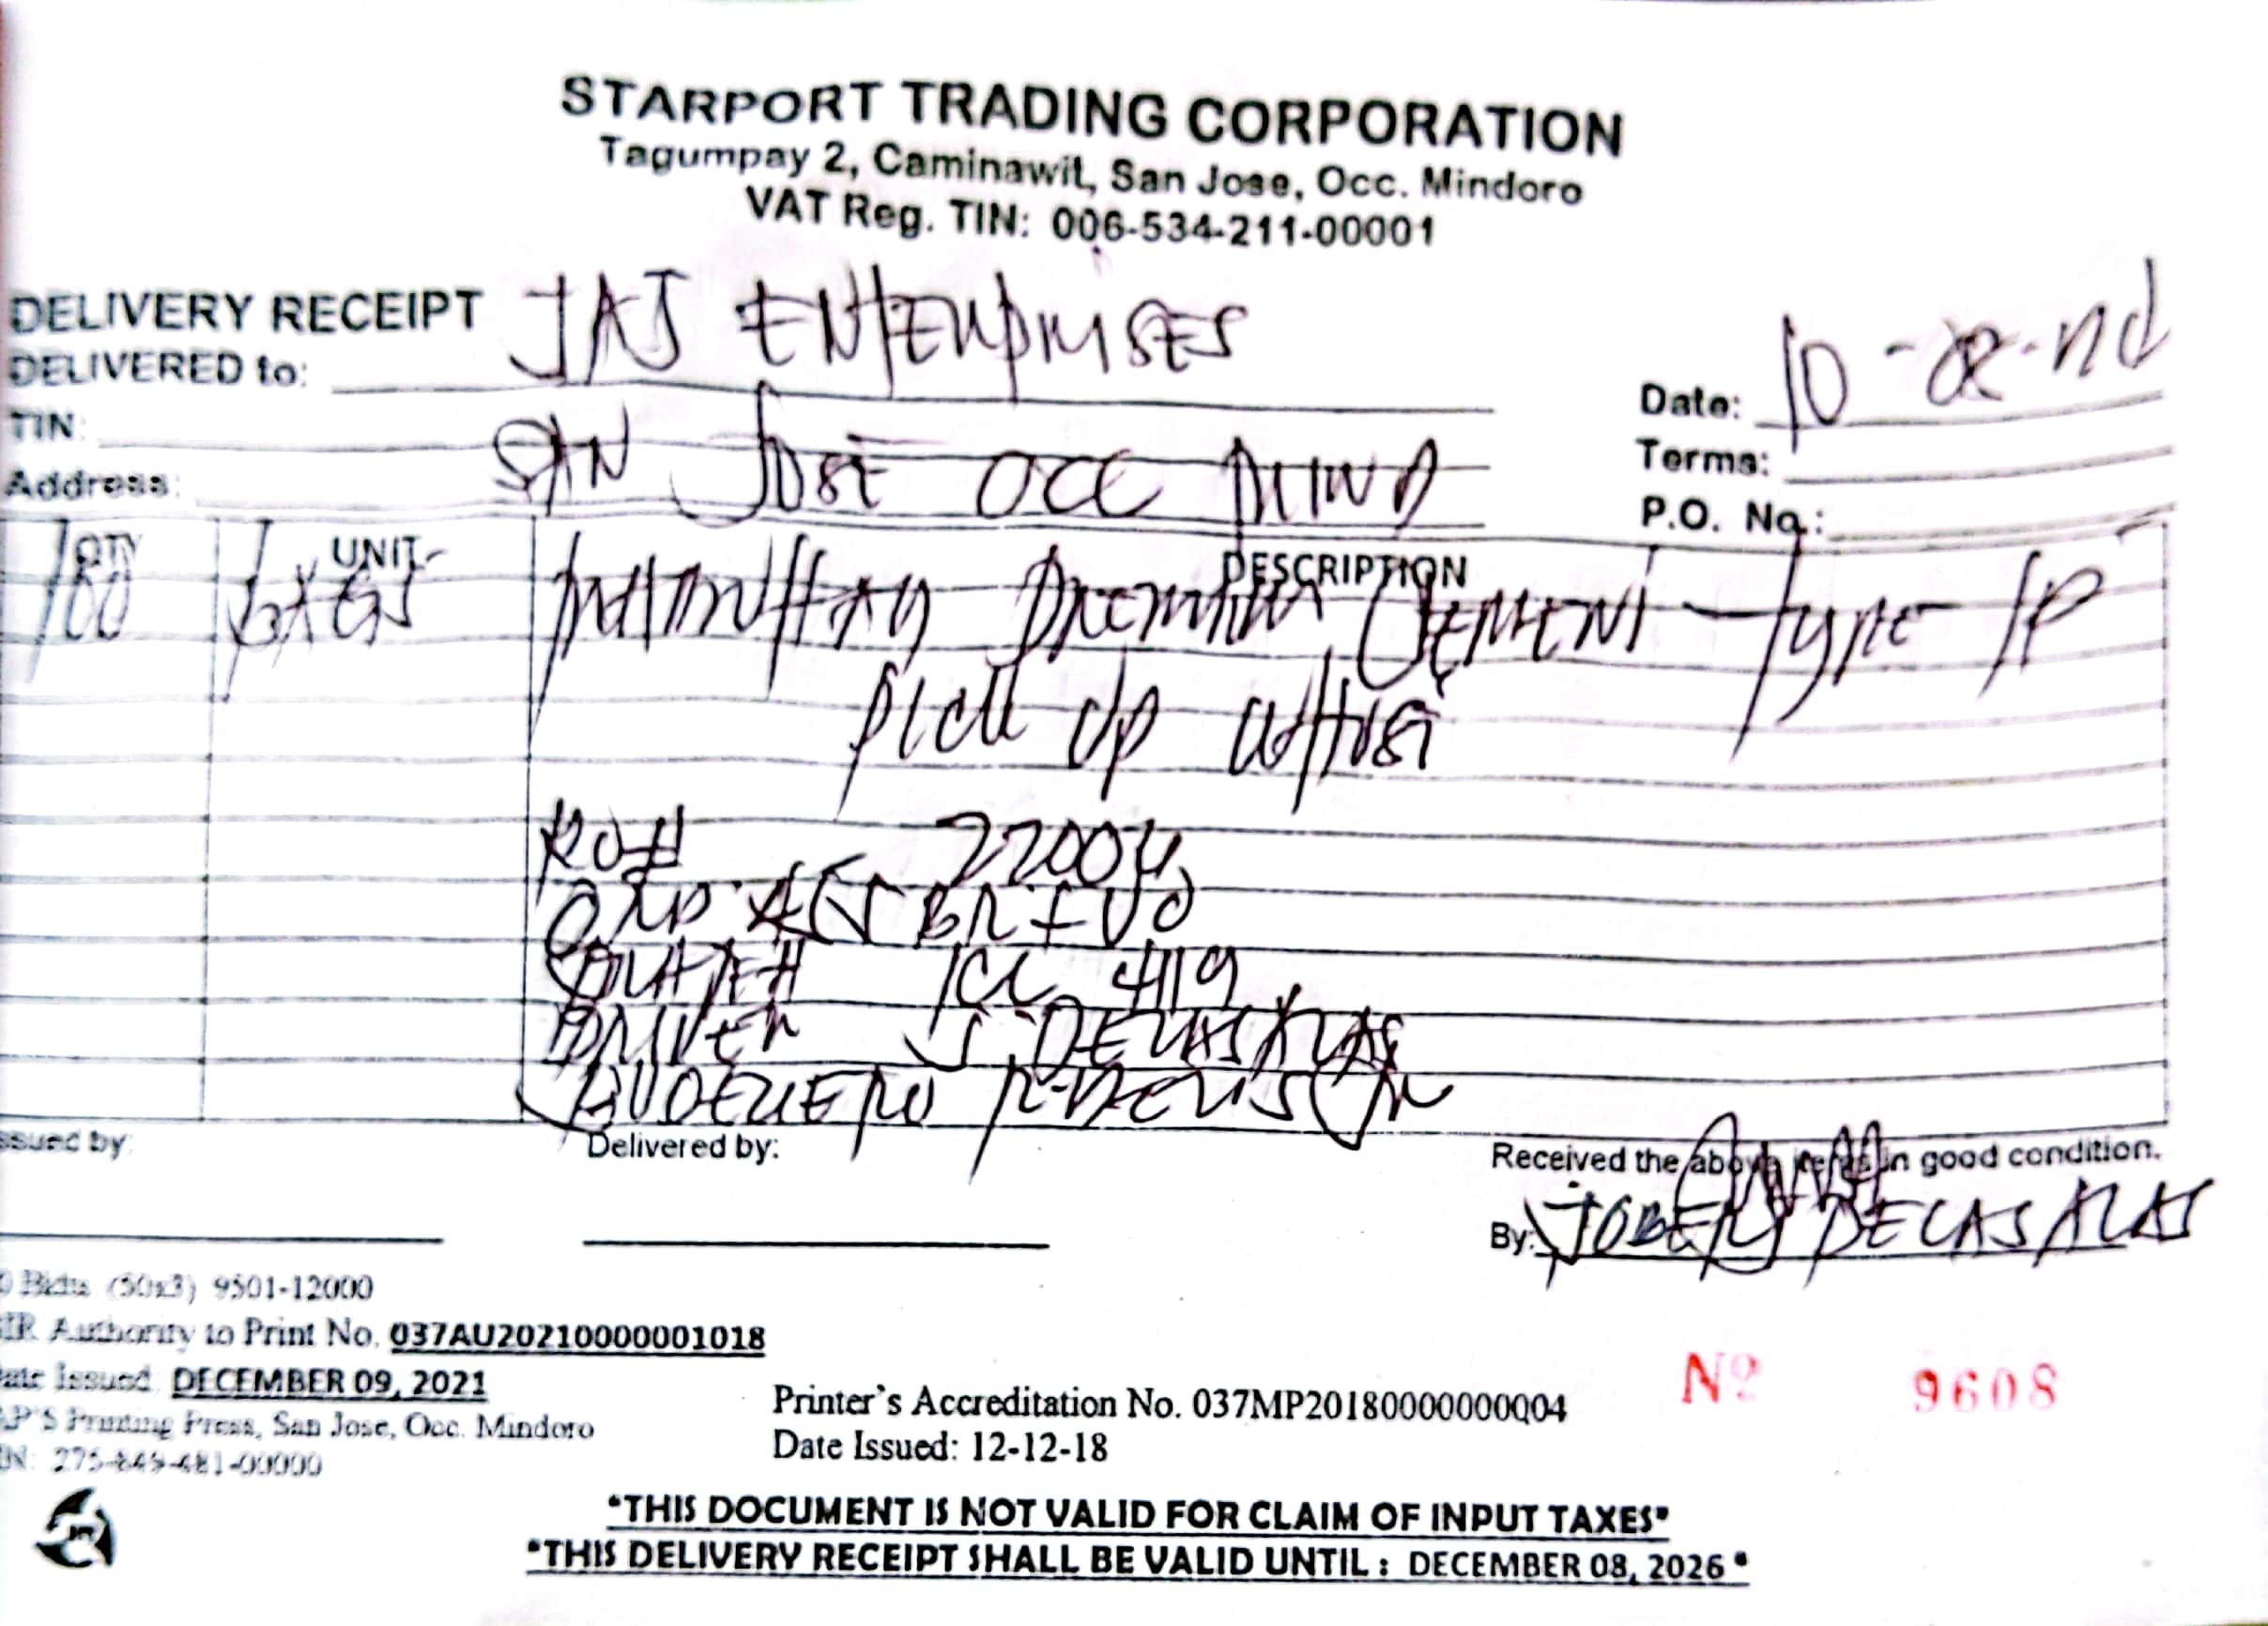 STARPORT TRADING CORPORATION
Tagumpay 2, Caminawit, San Jose, Occ. Mindoro
VAT Reg. TIN: 006-534-211-00001
DELIVERY RECEIPT
DELIVERED to: JAJ ENTERPRISES
Date: 10-
TIN:
Terms:
Address: SAN JOSE OCC MIND
P.O. No.:
QTY UNIT DESCRIPTION
100 BAGS Premium CEMENT Type 1P
Pick Up
RO# 22004
PLATE# 4119
DRIVER J. DELASALAS
BODEGERO
Issued by:
Delivered by:
Received the above items in good condition.
By: JOBERT DELASALAS
(50x3) 9501-12000
BIR Authority to Print No. 037AU20210000001018
Date Issued: DECEMBER 09, 2021
Printing Press, San Jose, Occ. Mindoro
275-849-481-00000
Printer's Accreditation No. 037MP20180000000004
Date Issued: 12-12-18
Nº 9608
"THIS DOCUMENT IS NOT VALID FOR CLAIM OF INPUT TAXES"
"THIS DELIVERY RECEIPT SHALL BE VALID UNTIL : DECEMBER 08, 2026"